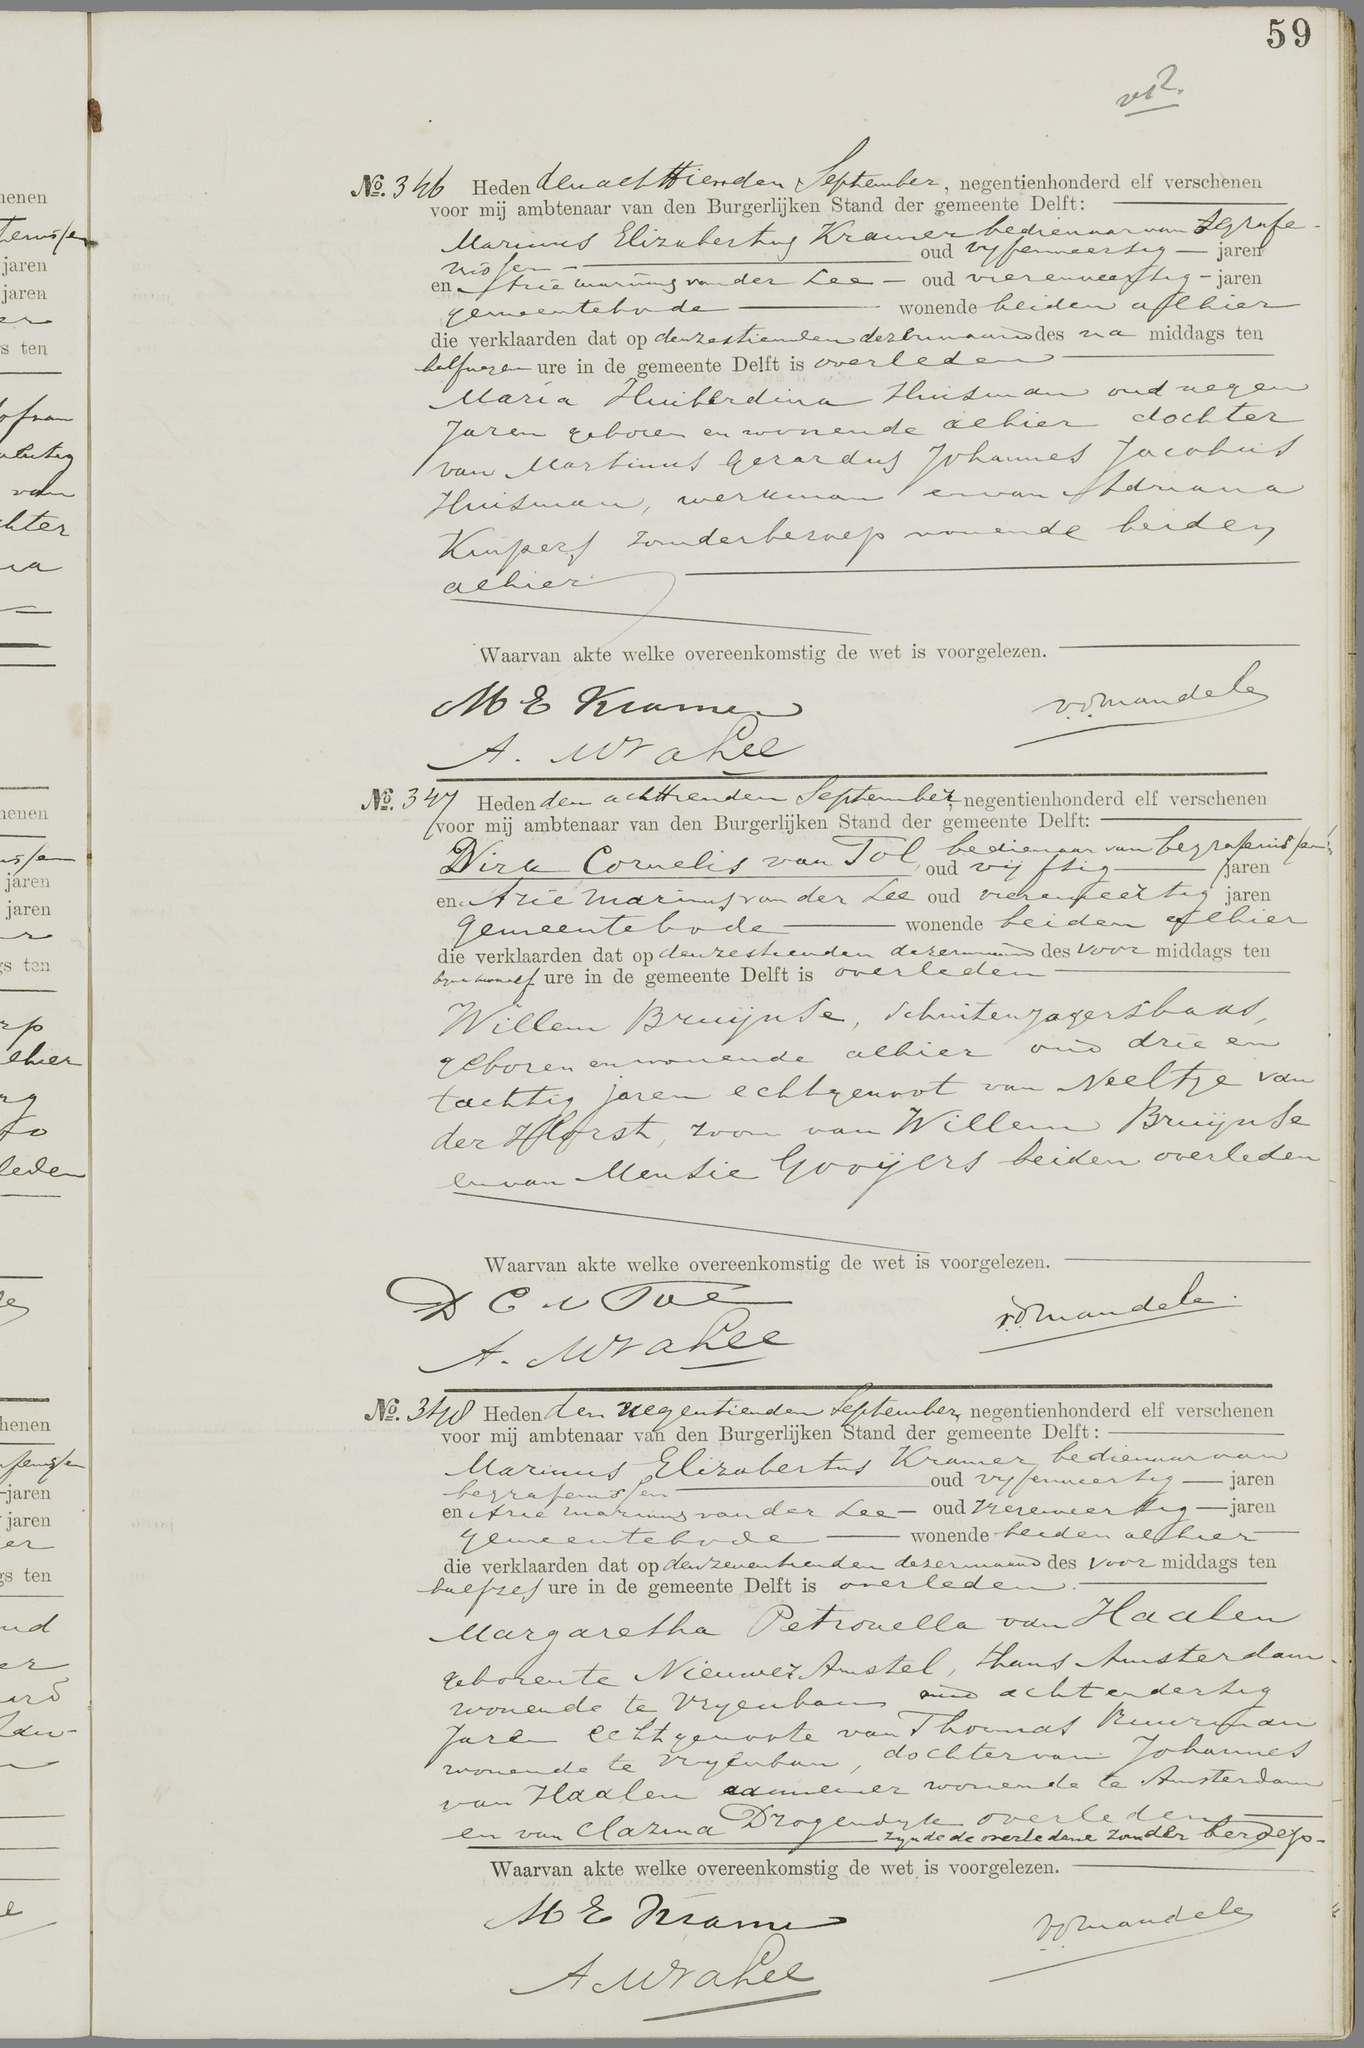 59
No. 346 Heden den achttienden September, negentienhonderd elf verschenen
voor mij ambtenaar van den Burgerlijken Stand der gemeente Delft:
Marinus Elizabertus Kramer bedienaar van begrafe-
nissen oud vijfenveertig jaren
en Arie Marinus van der Lee oud vierenveertig jaren
gemeentebode wonende beiden alhier
die verklaarden dat op den zestienden dezer maand des na middags ten
half negen ure in de gemeente Delft is overleden
Maria Huiberdina Huisman oud negen
jaren geboren en wonende alhier dochter
van Martinus Gerardus Johannes Jacobus
Huisman, werkman en van Adriana
Kuipers zonder beroep wonende beiden
alhier.
Waarvan akte welke overeenkomstig de wet is voorgelezen.
M E Kramer
v.d. Mandele
A. M v d Lee
No. 347 Heden den achttienden September, negentienhonderd elf verschenen
voor mij ambtenaar van den Burgerlijken Stand der gemeente Delft:
Dirk Cornelis van Tol, bedienaar van begrafenissen
oud vijftig jaren
en Arie Marinus van der Lee oud vierenveertig jaren
gemeentebode wonende beiden alhier
die verklaarden dat op den zestienden dezer maand des voor middags ten
ure in de gemeente Delft is overleden
Willem Bruijnse, Schuitenjagersbaas,
geboren en wonende alhier oud drie en
tachtig jaren echtgenoot van Neeltje van
der Horst, zoon van Willem Bruijnse
en van Mensie Gooijers beiden overleden
Waarvan akte welke overeenkomstig de wet is voorgelezen.
D C v Tol
v.d. Mandele.
A. M v d Lee
No. 348 Heden den negentienden September, negentienhonderd elf verschenen
voor mij ambtenaar van den Burgerlijken Stand der gemeente Delft:
Marinus Elizabertus Kramer bedienaar van
begrafenissen oud vijfenveertig jaren
en Arie Marinus van der Lee oud vierenveertig jaren
gemeentebode wonende beiden alhier
die verklaarden dat op den zeventienden dezer maand des voor middags ten
half zes ure in de gemeente Delft is overleden
Margaretha Petronella van Haalen
geboren te Nieuwer Amstel, thans Amsterdam
wonende te Vrijenban oud achtendertig
jaren echtgenoote van Thomas Buurman
wonende te Vrijenban, dochter van Johannes
van Haalen aannemer wonende te Amsterdam
en van Clazina Drogendijk overleden
zijnde de overledene zonder beroep.
Waarvan akte welke overeenkomstig de wet is voorgelezen.
M E Kramer
v.d. Mandele
A. M v d Lee